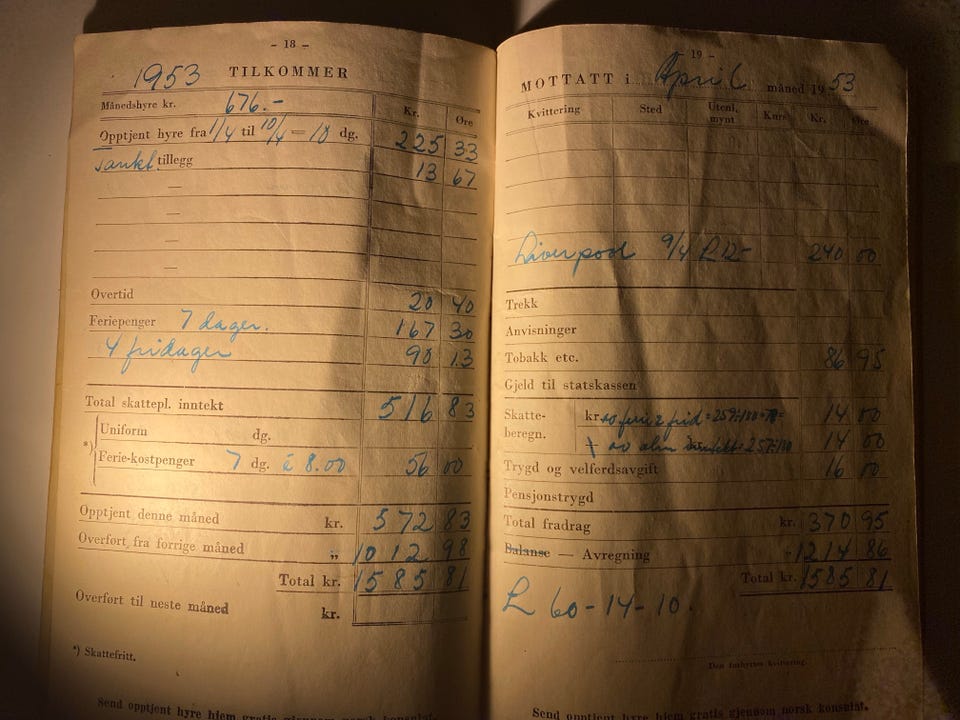 - 18 -
1953 TILKOMMER
Månedshyre kr. 676.- Kr. Øre
Opptjent hyre fra 1/4 til 10/4 — 10 dg. 225 33
tillegg 13 67
—
—
—
—
Overtid 20 40
Feriepenger 7 dager. 167 30
4 fridager 90 13
Total skattepl. inntekt 516 83
*) Uniform dg.
Ferie-kostpenger 7 dg. à 8.00 56 00
Opptjent denne måned kr. 572 83
Overført fra forrige måned „ 1012 98
Total kr. 1585 81
Overført til neste måned kr.
*) Skattefritt.
Send opptjent hyre hjem gratis gjennom norsk konsulat.
19 -
MOTTATT i April måned 1953
Kvittering Sted Utenl. mynt Kurs Kr. Øre
Liverpool 9/4 £12- 240 00
Trekk
Anvisninger
Tobakk etc. 86 95
Gjeld til statskassen
Skatte- kr. 14 00
beregn. 14 00
Trygd og velferdsavgift 16 00
Pensjonstrygd
Total fradrag kr. 370 95
Balanse — Avregning 1214 86
Total kr. 1585 81
£ 60-14-10.
Den ombyttes kvittering.
Send opptjent hyre hjem gratis gjennom norsk konsulat.